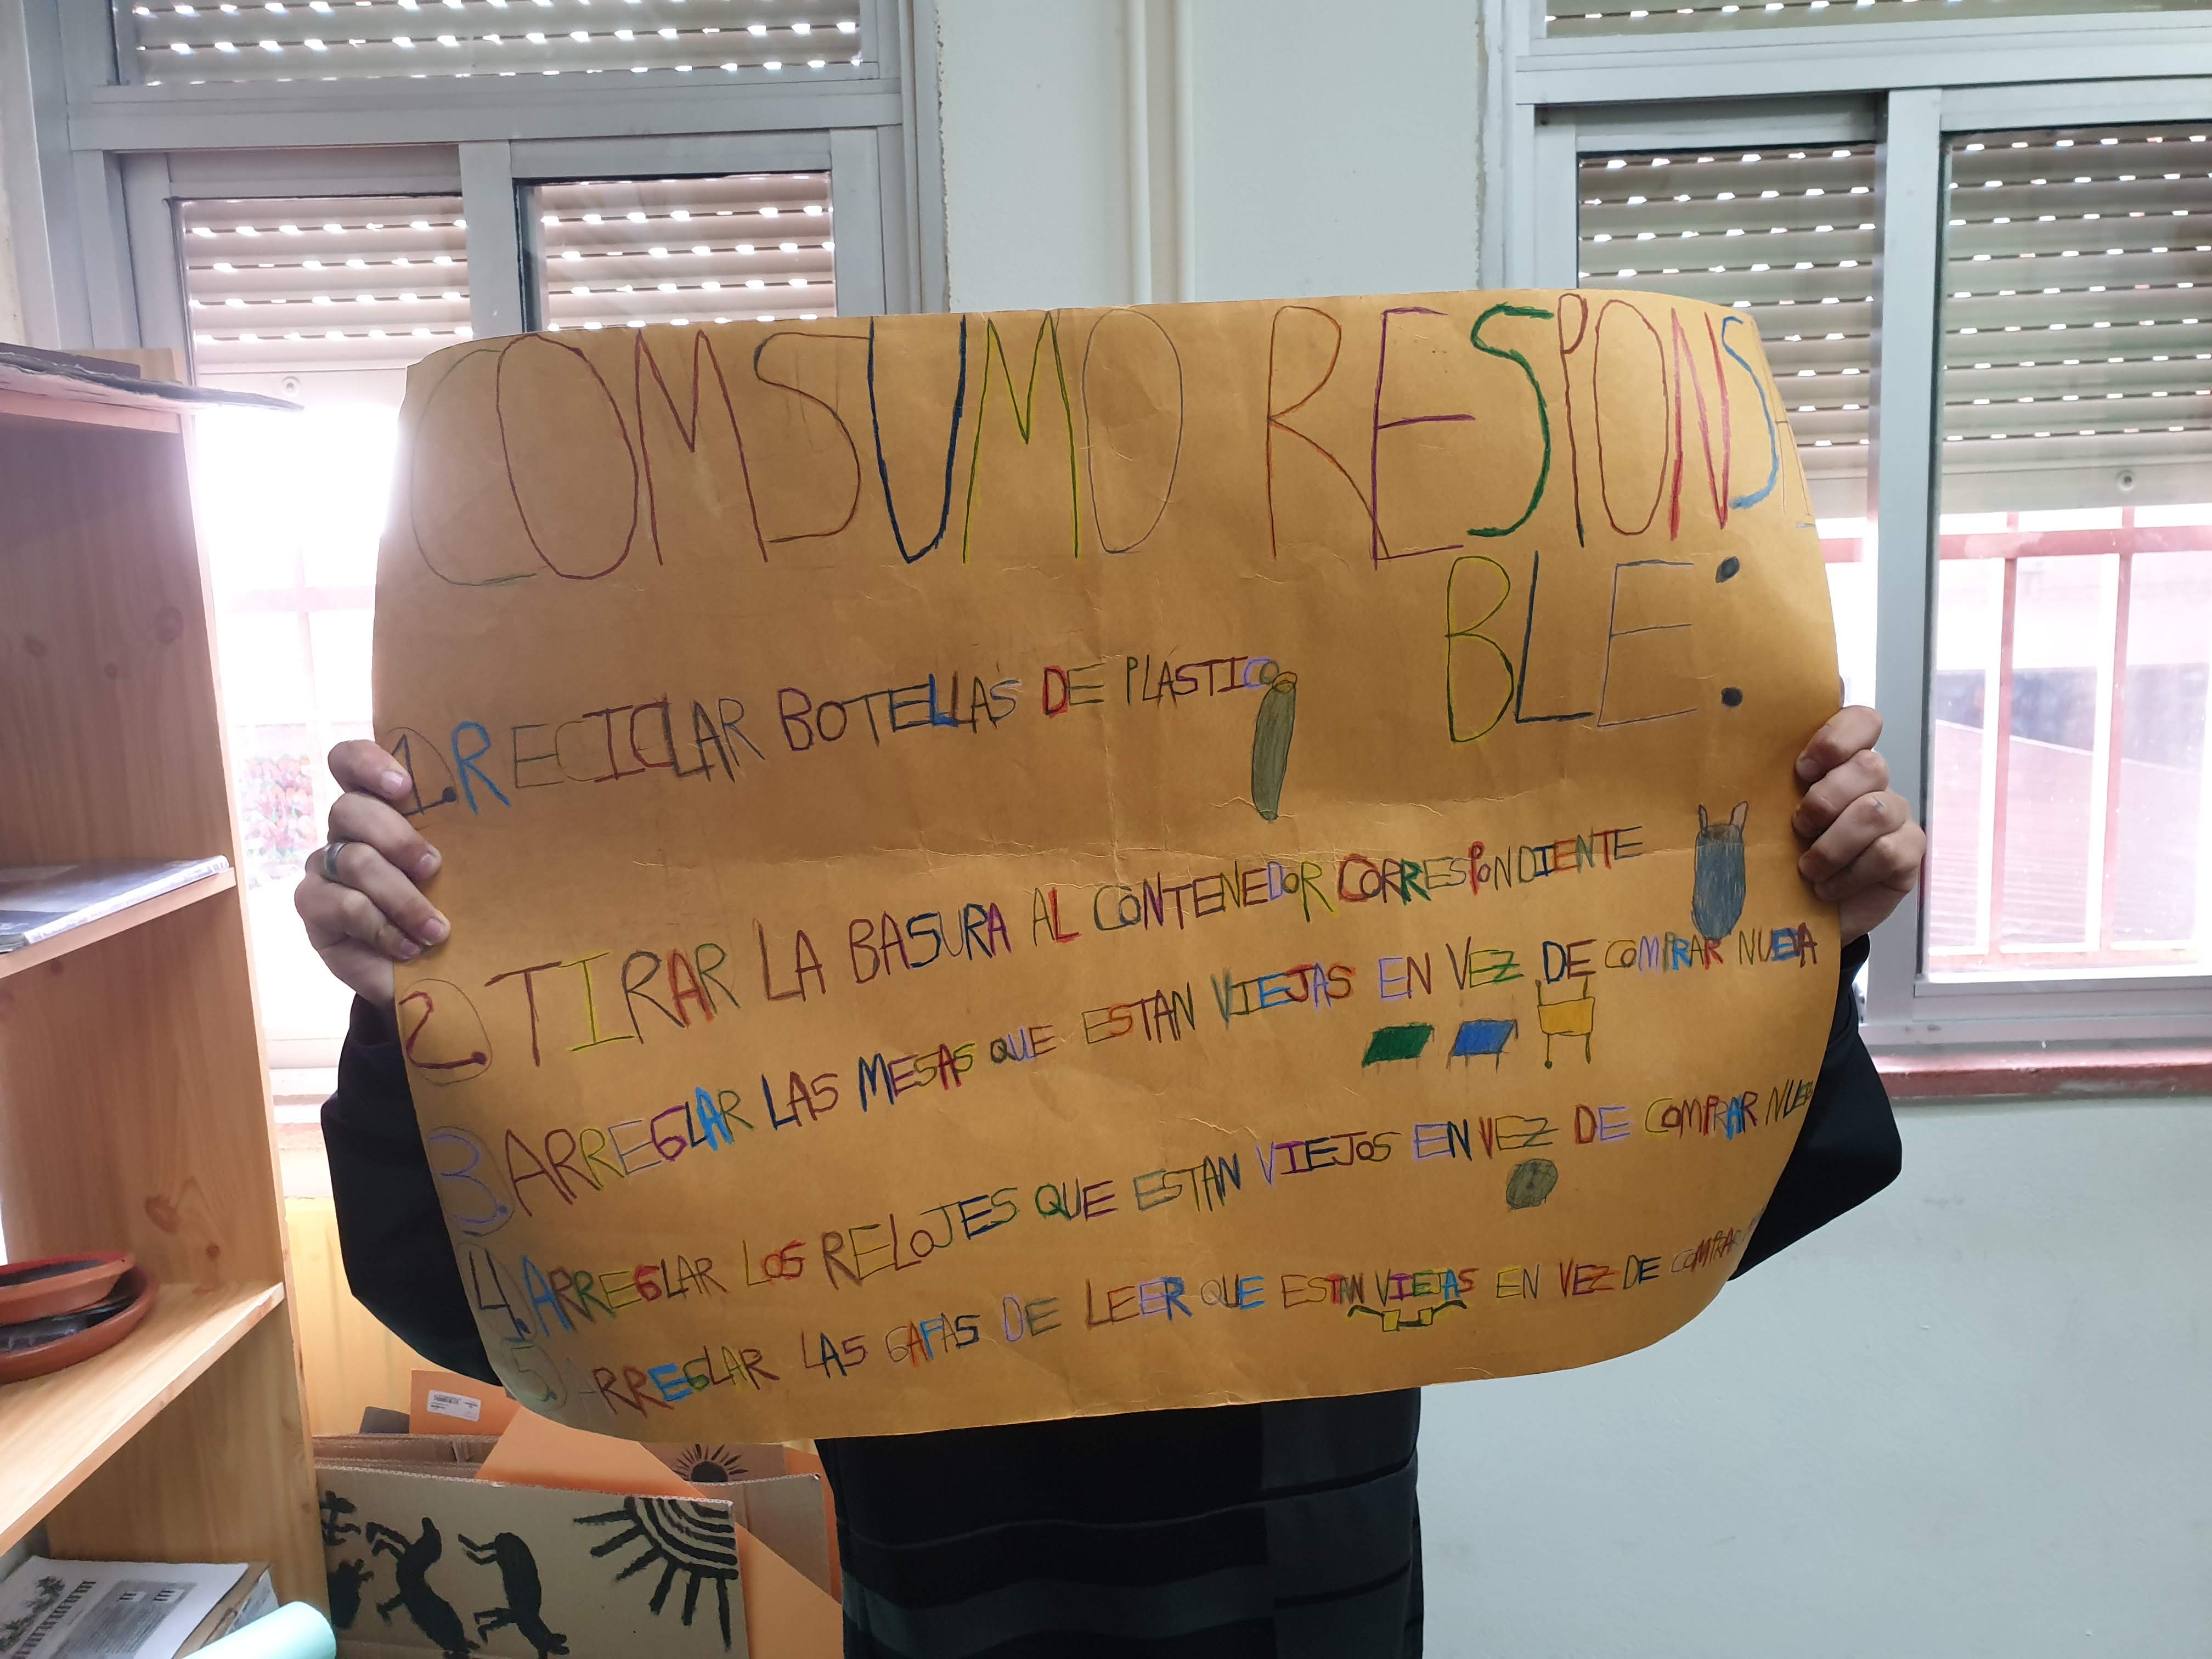 COMSUMO RESPONSA
BLE:
1. RECICLAR BOTELLAS DE PLÁSTICO
2. TIRAR LA BASURA AL CONTENEDOR CORRESPONDIENTE
3. ARREGLAR LAS MESAS QUE ESTAN VIEJAS EN VEZ DE COMPRAR NUEVA
4. ARREGLAR LOS RELOJES QUE ESTAN VIEJOS EN VEZ DE COMPRAR
5. ARREGLAR LAS GAFAS DE LEER QUE ESTAN VIEJAS EN VEZ DE COMPRAR